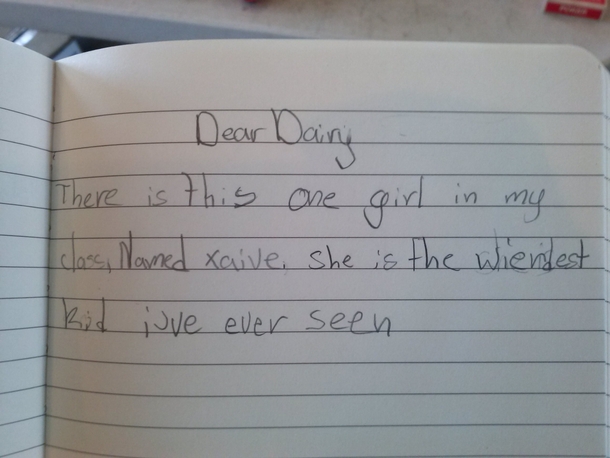 Dear Dairy
There is this one girl in my
class, Named xaive. she is the wierdest
kid ive ever seen